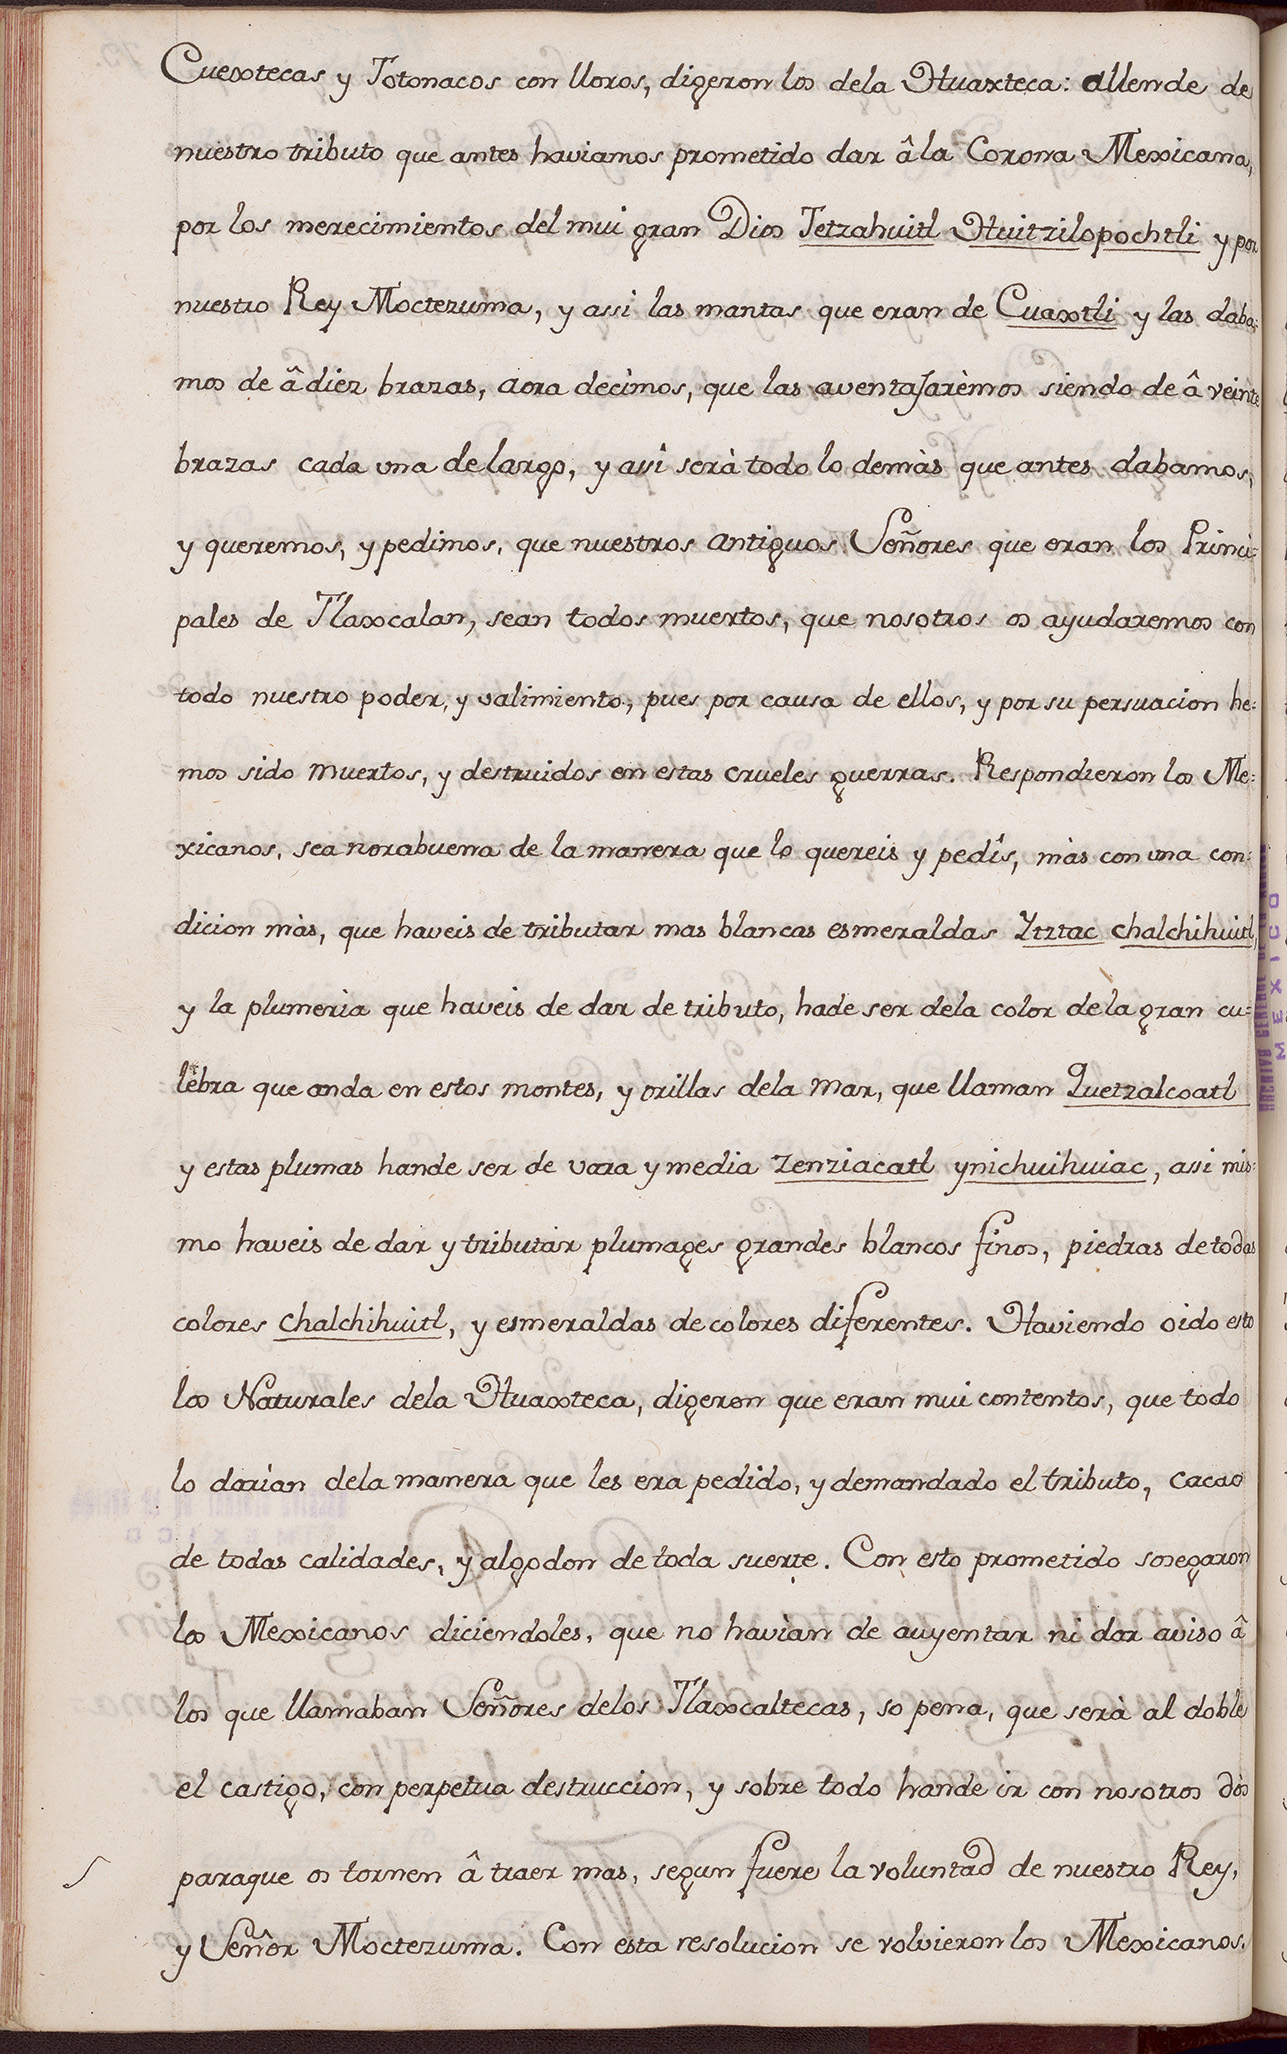 Cuextecas y Totonacos con lloros, digeron los dela Huaxteca: allende de
nuestro tributo que antes haviamos prometido dar â la Corona Mexicana,
por los merecimientos del mui gran Dios Tetzahuitl Huitzilopochtli y por
nuestro Rey Moctezuma, y assi las mantas que eran de Cuaxtli y las daba=
mos de â diez brazas, aora decìmos, que las aventajarèmos siendo de â veinte
brazas cada una de largo, y assi serà todo lo demàs que antes dabamos,
y queremos, y pedimos, que nuestros antiguos Señores que eran los Princi=
pales de Tlaxcalan, sean todos muertos, que nosotros os ayudaremos con
todo nuestro poder, y valimiento, pues por causa de ellos, y por su persuacion he=
mos sido muertos, y destruidos en estas crueles guerras. Respondieron los Me=
xicanos, sea norabuena de la manera que lo quereis y pedîs, màs con una con=
dicion màs, que haveis de tributar mas blancas esmeraldas Yztac chalchihuitl,
y la plumerìa que haveis de dar de tributo, hade ser dela color de la gran cu=
lebra que anda en estos montes, y orillas dela mar, que llaman Quetzalcoatl
y estas plumas hande ser de vara y media zenziacatl ynichuihuiac, assi mis=
mo haveis de dar y tributar plumages grandes blancos finos, piedras de todas
colores chalchihuitl, y esmeraldas de colores diferentes. Haviendo oido esto
los Naturales dela Huaxteca, digeron que eran mui contentos, que todo
lo darìan dela manera que les era pedido, y demandado el tributo, cacao
de todas calidades, y algodon de toda suerte. Con esto prometido sosegaron
los Mexicanos diciendoles, que no havìan de auyentar ni dar aviso â
los que llamaban Señores delos Tlaxcaltecas, so pena, que serà al doble
el castigo, con perpetua destruccion, y sobre todo hande ir con nosotros dòs
paraque os tornen â traer mas, segun fuere la voluntad de nuestro Rey,
y Señor Moctezuma. Con esta resolucion se volvieron los Mexicanos.
ARCHIVO GENERAL DE LA NACION
MEXICO